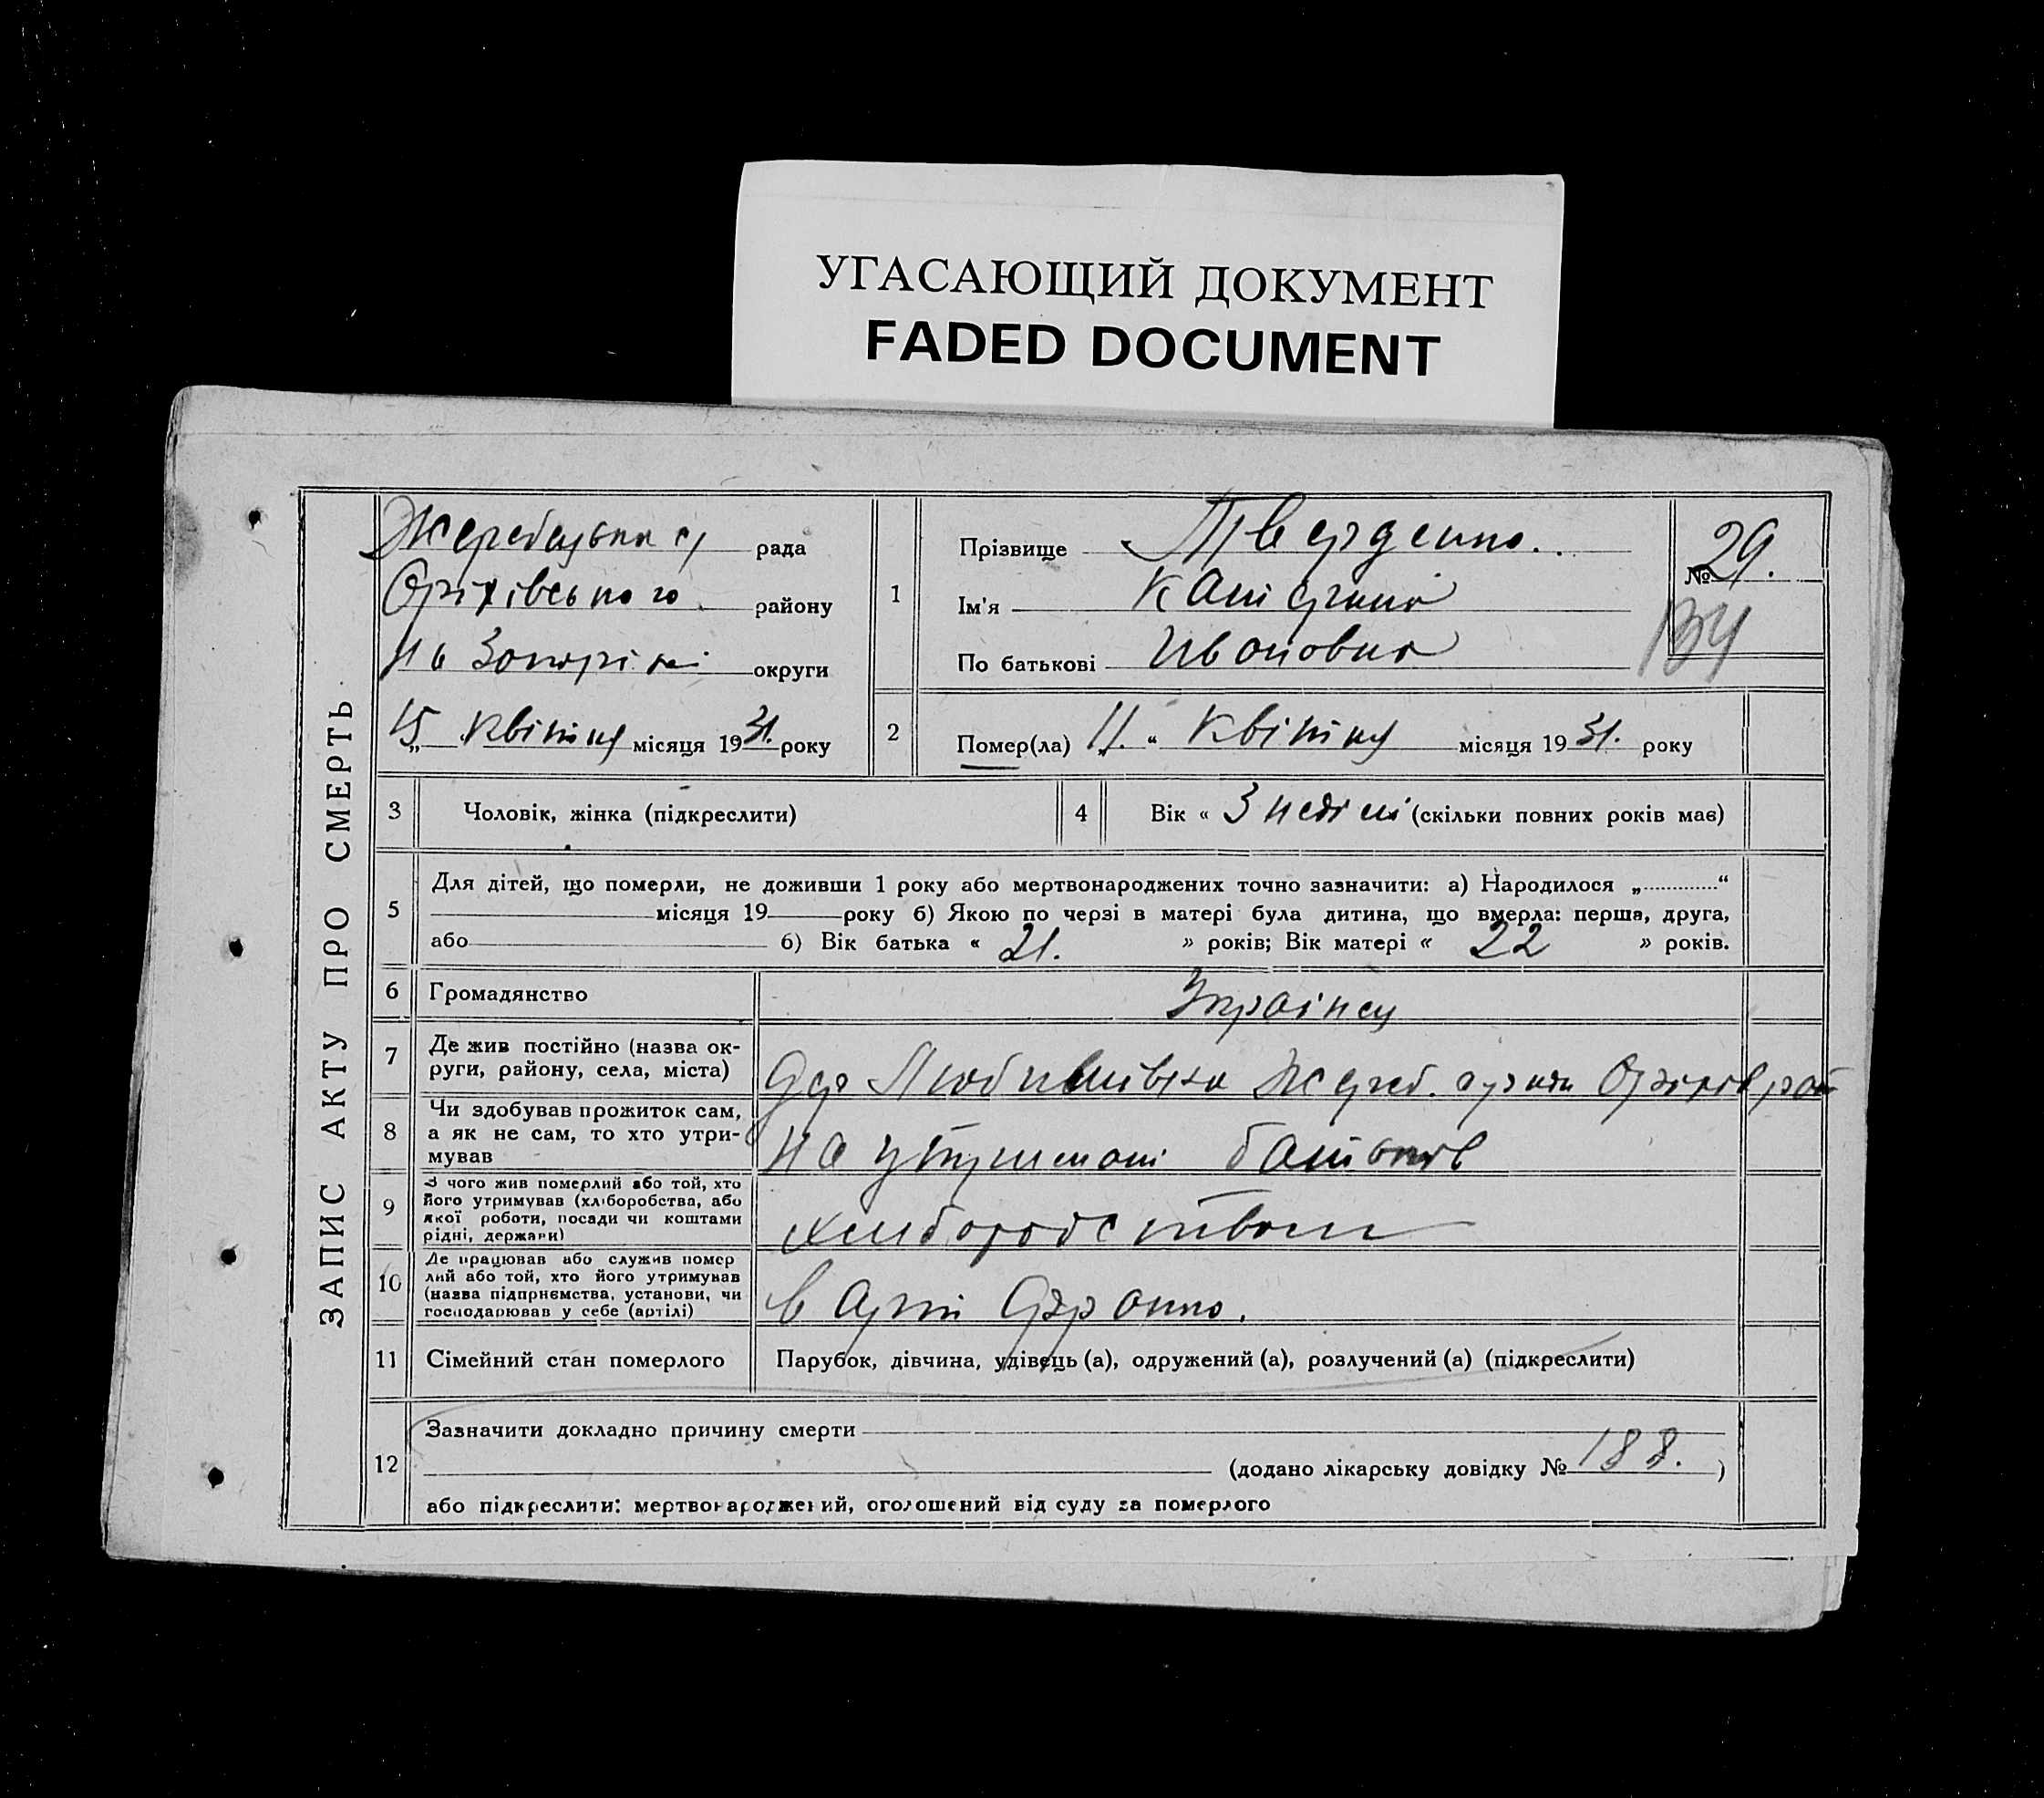 УГАСАЮЩИЙ ДОКУМЕНТ
FADED DOCUMENT
ЗАПИС АКТУ ПРО СМЕРТЬ
рада
Оріхівського району
на округи
15 „ Квітня місяця 1931. року
1
Прізвище Тверденко.
Ім'я Катерина
По батькові Ивановна
№ 29.
134
2
Помер(ла) „ 11. “ Квітня місяця 1931. року
3
Чоловік, жінка (підкреслити)
4
Вік « 3 неділі (скільки повних років має)
5
Для дітей, що померли, не доживши 1 року або мертвонароджених точно зазначити: а) Народилося „............“
місяця 19 року б) Якою по черзі в матері була дитина, що вмерла: перша, друга,
або б) Вік батька « 21. » років; Вік матері « 22 » років.
6
Громадянство
Україна
7
Де жив постійно (назва ок-
руги, району, села, міста)
Жереб.
8
Чи здобував прожиток сам,
а як не сам, то хто утри-
мував
на утримані батьків
9
З чого жив померлий або той, хто
його утримував (хліборобства, або
якої роботи, посади чи коштами
рідні, держави)
хліборобством
10
Де працював або служив помер
лий або той, хто його утримував
(назва підприємства, установи, чи
господарював у себе (артілі)
в Арті
11
Сімейний стан померлого
Парубок, дівчина, удівець (а), одружений (а), розлучений (а) (підкреслити)
12
Зазначити докладно причину смерти
(додано лікарську довідку № 188. )
або підкреслити: мертвонароджений, оголошений від суду за померлого